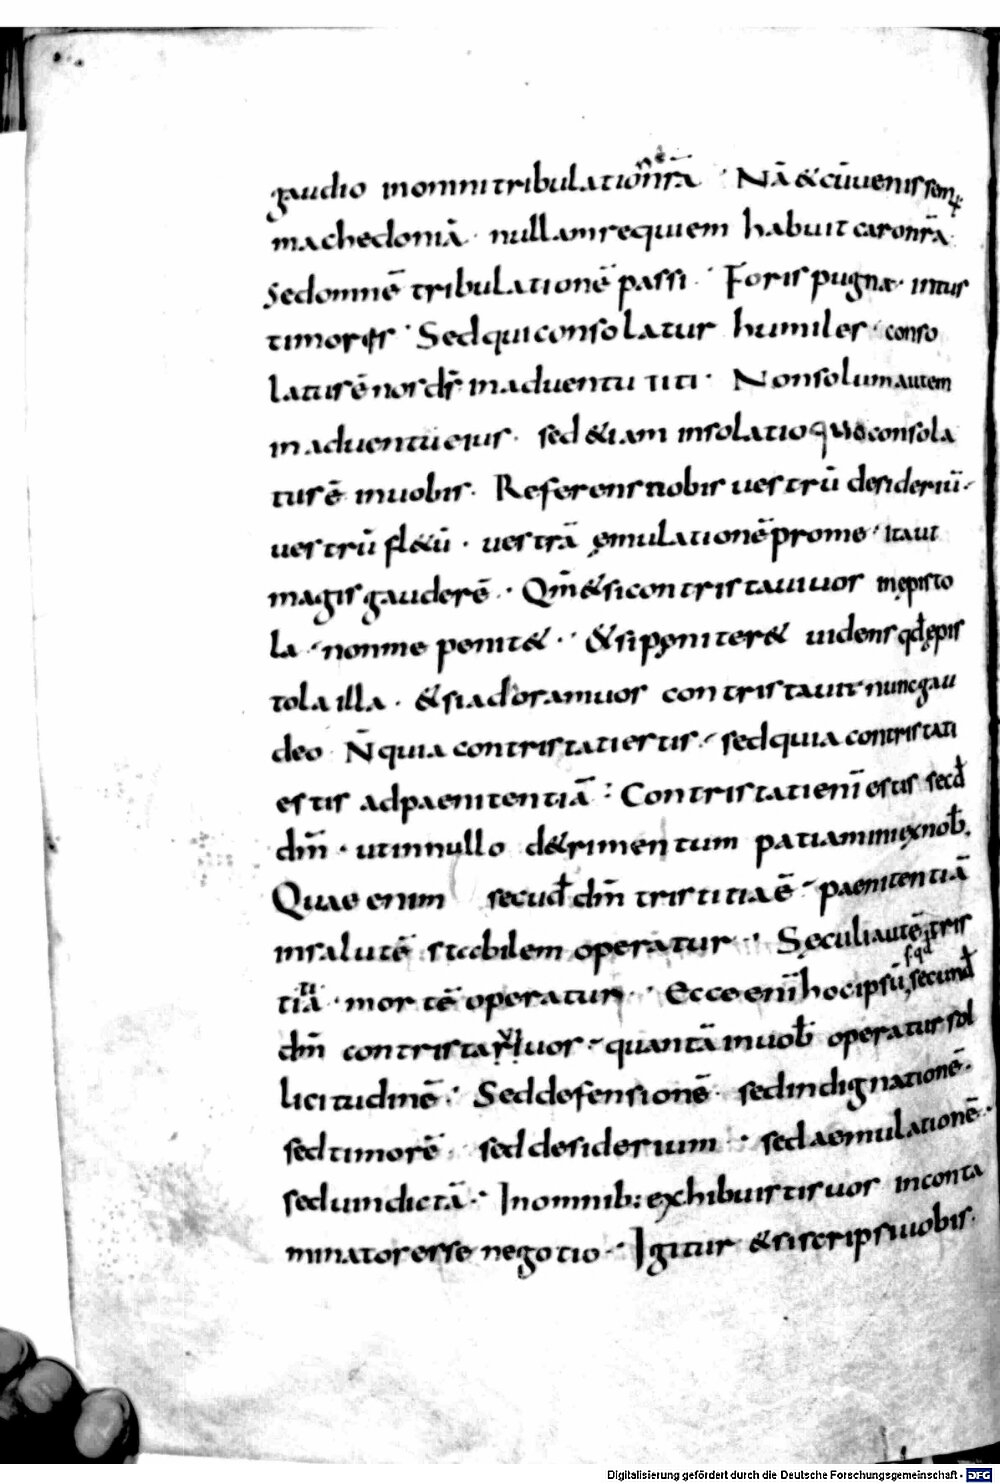 gaudio inomni tribulationeñrā · Nā & cū uenissem˙
machedoniā · nullam requiem habuit caro nrā·
Sed omnē tribulationē passi · Foris pugnæ · intus
timores · Sed qui consolatur humiles · conso
latus ē nos dr̄ in aduentu titi · Non solum autem
in aduentu eius · sed &iam in solatio quo consola
tus ē in uobis · Referens nobis uestrū desideriū·
uestrū fl&ū · uestrā ęmulationē pro me · ita ut
magis gauderē · Qm̄ & si contristaui uos in ępisto
la · non me penit& · & si pęniter& uidens qd̄ ępis
tola illa · & si ad oram uos contristauit nunc gau
deo N̄ quia contristati estis · sed quia contristati
estis ad paenitentiā · Contristati eni̅ estis secd̄
dm̄ · ut in nullo d&rimentum patiamini ex nob̄.
Quae enim secud̄ dm̄ tristitia ē · paenitentiā
in salutē stabilem operatur · Sęculi autē tris
titiā · mortē operatur · Ecce eni̅ hoc ipsū, sqd secund̄
dm̄ contristari uos · quantā in uob̄ operatur sol
licitudinē · Sed defensionē · sed indignationē·
sed timorē · sed desiderium · sed aemulationē·
sed uindictā · In omnib: exhibuistis uos inconta
minatos esse negotio · Igitur & si scripsi uobis·
Digitalisierung gefördert durch die Deutsche Forschungsgemeinschaft - DFG